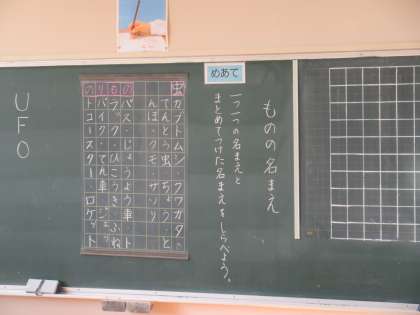 めあて
ものの名まえ
一つ一つの名まえと
まとめてつけた名まえをしらべよう。
虫
カブトムシ・クワガタ・
てんとう虫・ちょう・と
んぼ・クモ・サソリ
のりもの
バス・じょうよう車・ト
ラック・ひこうき・ふね
バイク・でん車・ジェッ
トコースター・ロケット
UFO